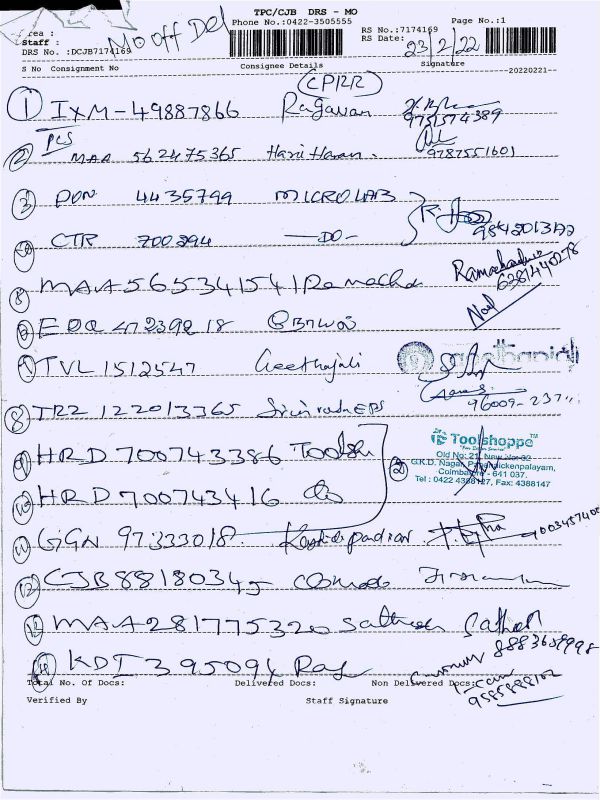 TPC/CJB DRS - MO
Phone No.:0422-3505555
Page No.:1
Area :
Staff :
MO off Del
DRS No. :DCJB7174169
RS No.:7174169
RS Date:
23/2/22
S No Consignment No Consignee Details Signature
20220221
(CPRR)
1 IXM-49887866 Ragavan
9751574389
PCS
2 MAA 562475365 Hariharan.
9787551601
3 PON 4435799 MICROLAB
CTR 700294 -DO-
MAA 565341541 Ramacha
6281440278
6 EDQ 472399218
7 TVL 1512547 Geethajali
8 TRZ 122013365
96009-237
9 HRD 700743386 Toolshe
2
Toolshoppe™
Old No: 21, New No: 92
G.K.D. Nagar, Pappanaickenpalayam,
Coimbatore - 641 037.
Tel : 0422 4388127, Fax: 4388147
10 HRD 700743416 Do
11 GGN 97333018
12 CJB8818034
13 MAA281775320 Sathish Sathish
8883659998
14 KDI 395094 Raj
9585888102
Total No. Of Docs: Delivered Docs: Non Delivered Docs:
Verified By Staff Signature